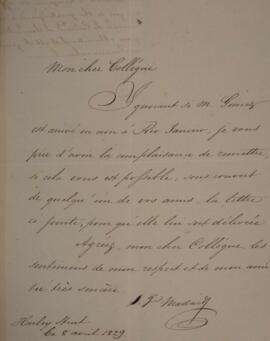 Mon cher Collègue
Ignorant si M.
est arrivé ou non à Rio Janeiro, je vous
prie d'avoir la complaisance de remettre,
si cela vous est possible, sous couvert
de quelqu'un de vos amis, la lettre
ci jointe, pour qu'elle lui soit délivrée.
Agréez, mon cher Collègue, les
sentimens de mon respect et de mon ami-
tié très sincère
Harley Street
Ce 8 avril 1829